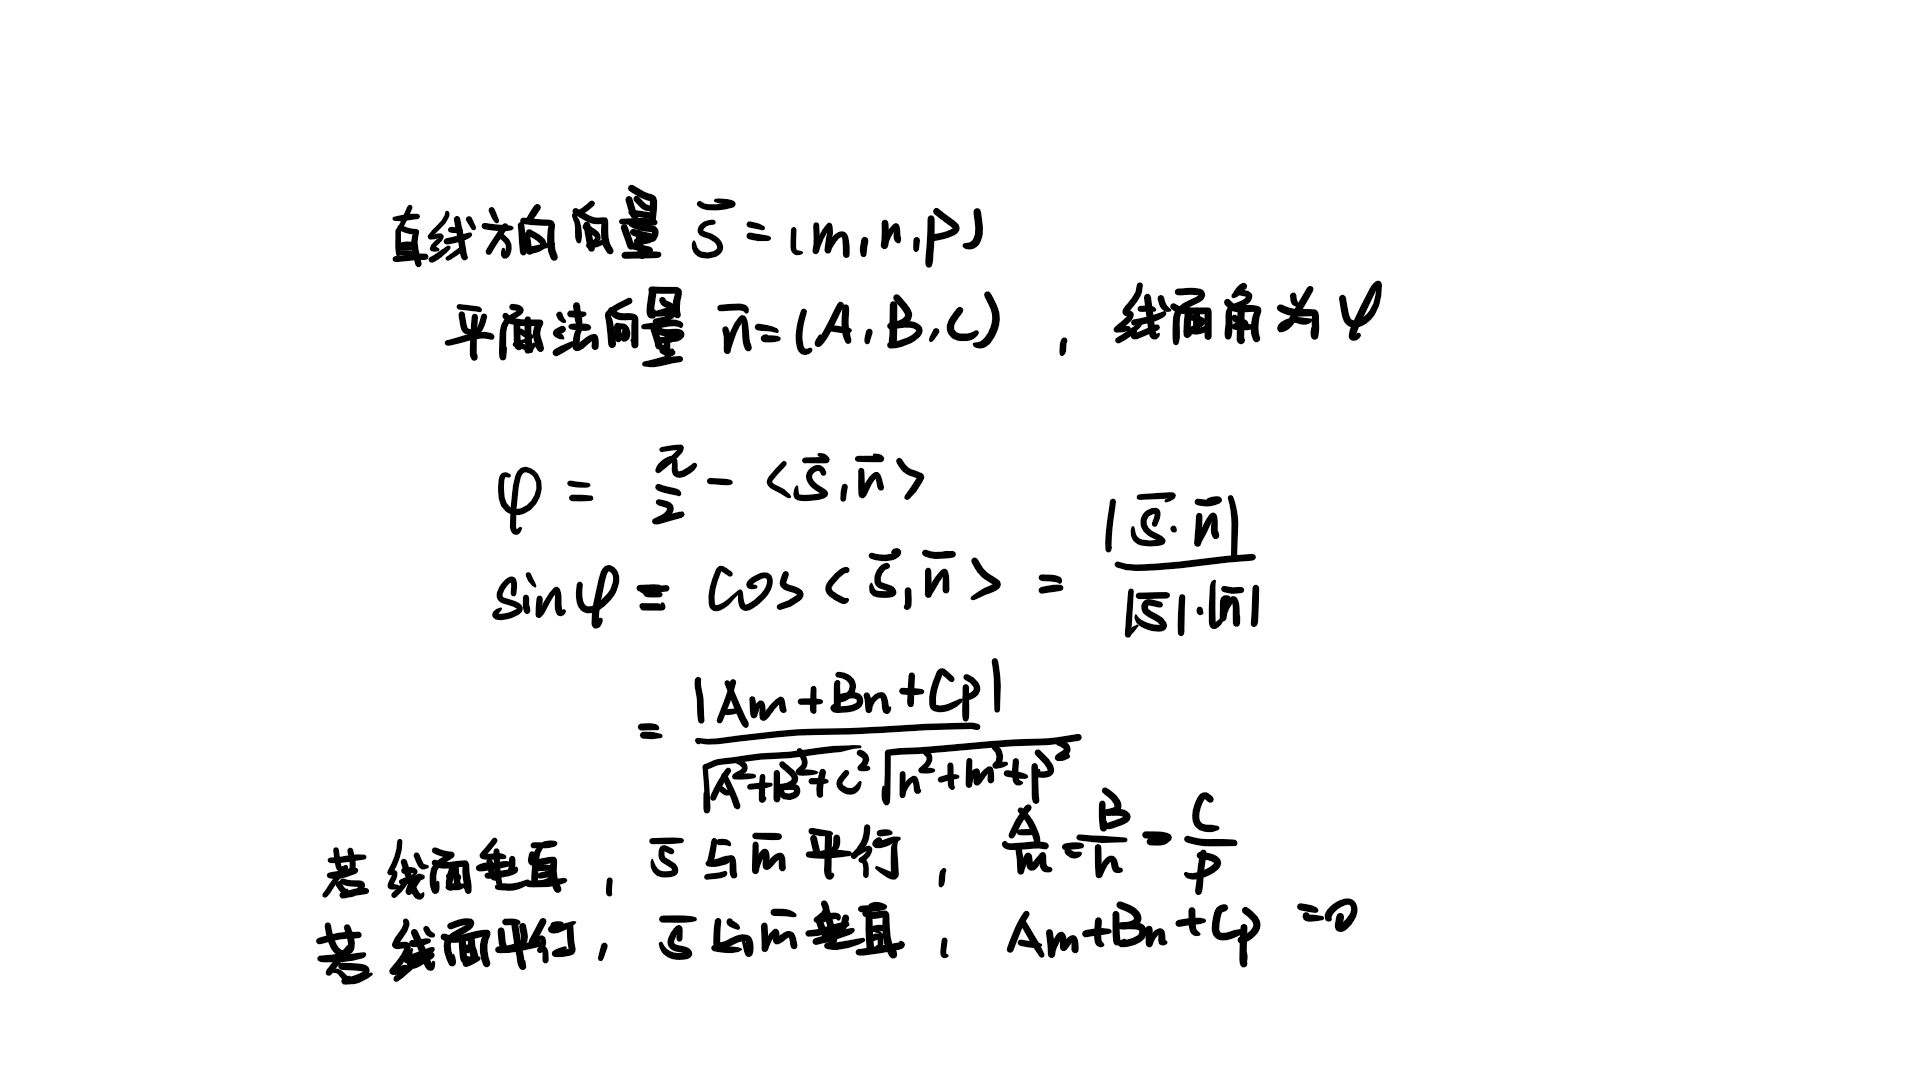 直线方向向量 s⃗ = (m, n, p)
平面法向量 n̄ = (A, B, C) , 线面角为 φ
φ = π/2 - <s̄, n̄>
sinφ = cos<s̄, n̄> = |s̄·n̄| / |s̄|·|n̄|
= |Am+Bn+Cp| / √(A²+B²+C²) √(n²+m²+p²)
若线面垂直, s̄与m̄平行, A/m = B/n = C/p
若线面平行, s̄与m̄垂直, Am+Bn+Cp=0